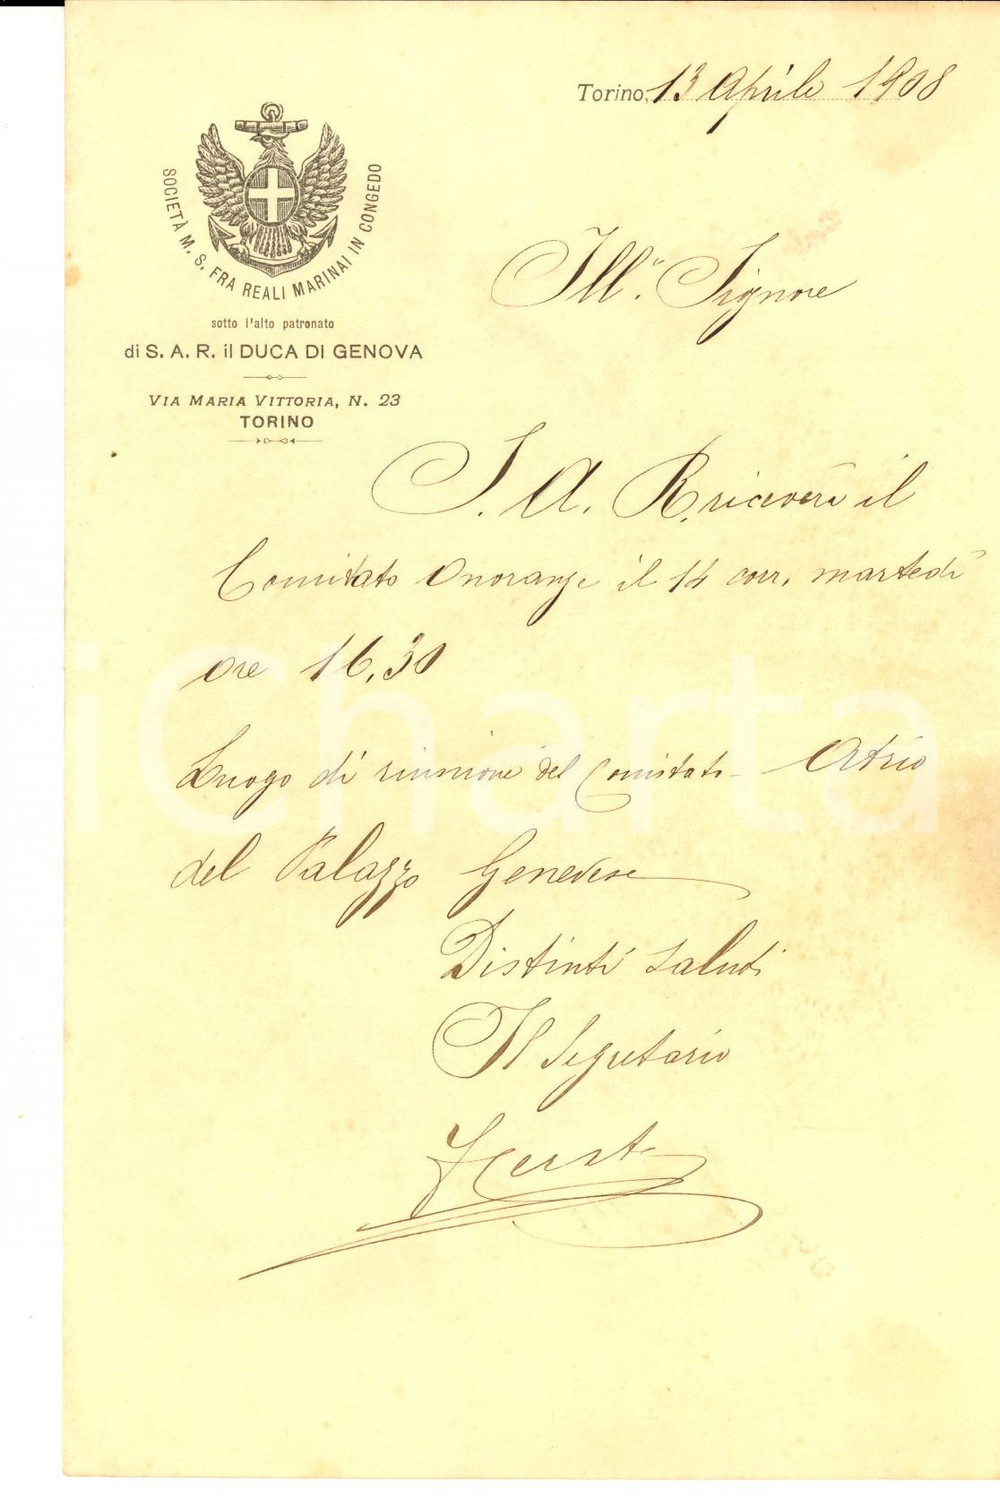 Torino, 13 Aprile 1908
SOCIETÀ M. S. FRA REALI MARINAI IN CONGEDO
sotto l'alto patronato
di S. A. R. il DUCA DI GENOVA
VIA MARIA VITTORIA, N. 23
TORINO
Ill.° Signore
S. A. R. riceverà il
Comitato Onoranze il 14 corr. martedì
ore 16,30
Luogo di riunione del Comitato - Atrio
del Palazzo Genevese
Distinti saluti
Il Segretario
iCharta